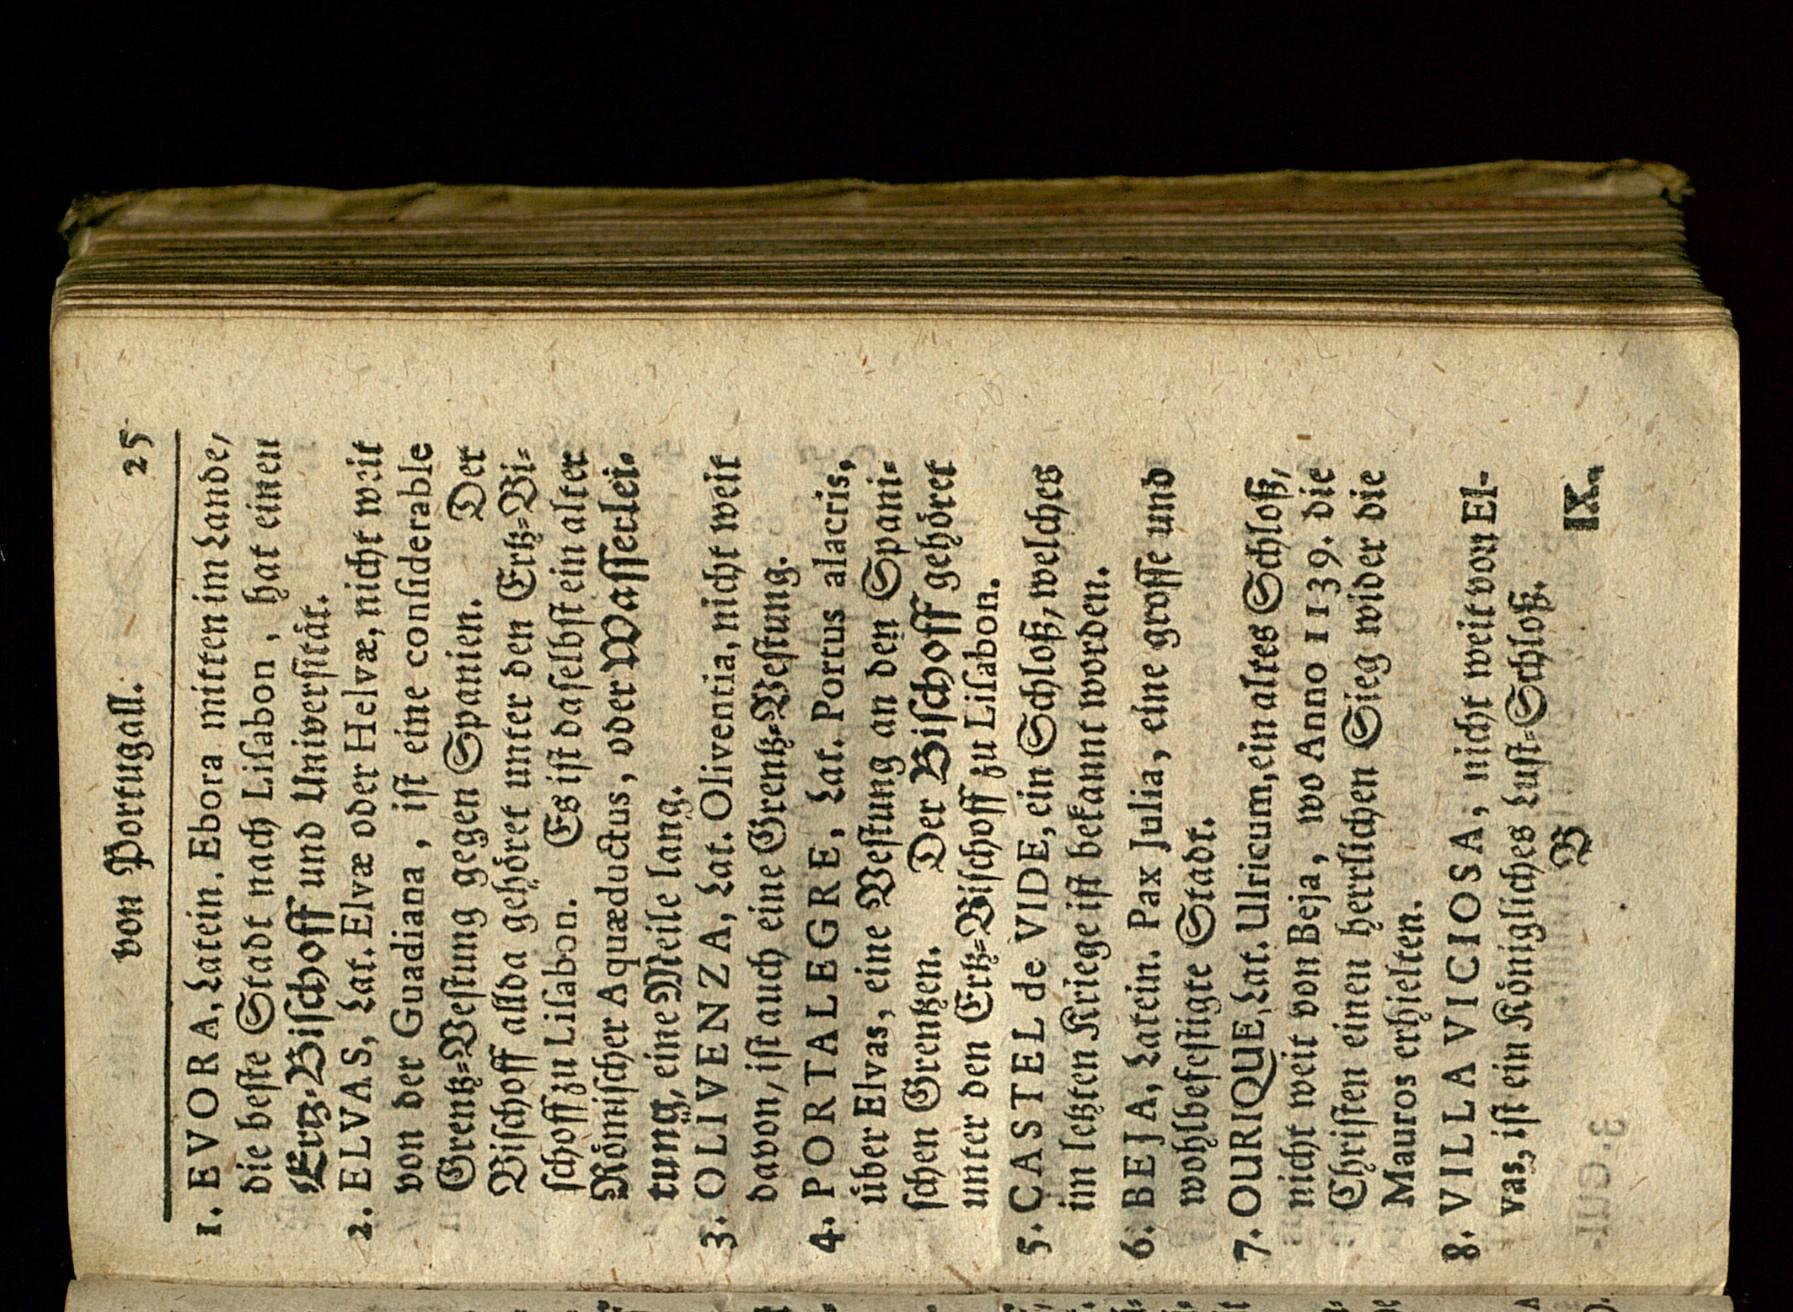 von Portugall. 25
1. EVORA, Latein. Ebora mitten im Lande,
die beste Stadt nach Lisabon, hat einen
Ertz-Bischoff und Universität.
2. ELVAS, Lat. Elvæ oder Helvæ, nicht weit
von der Guadiana, ist eine considerable
Grentz-Vestung gegen Spanien. Der
Bischoff allda gehöret unter den Ertz-Bi-
schoff zu Lisabon. Es ist daselbst ein alter
Römischer Aquæductus, oder Wasserlei-
tung, eine Meile lang.
3. OLIVENZA, Lat. Oliventia, nicht weit
davon, ist auch eine Grentz-Vestung.
4. PORTALEGRE, Lat. Portus alacris,
über Elvas, eine Vestung an den Spani-
schen Grentzen. Der Bischoff gehöret
unter den Ertz-Bischoff zu Lisabon.
5. CASTEL de VIDE, ein Schloß, welches
im letzten Kriege ist bekannt worden.
6. BEJA, Latein. Pax Julia, eine grosse und
wohlbefestigte Stadt.
7. OURIQUE, Lat. Ulricum, ein altes Schloß,
nicht weit von Beja, wo Anno 1139. die
Christen einen herrlichen Sieg wider die
Mauros erhielten.
8. VILLA VICIOSA, nicht weit von El-
vas, ist ein Königliches Lust-Schloß.
B IX.